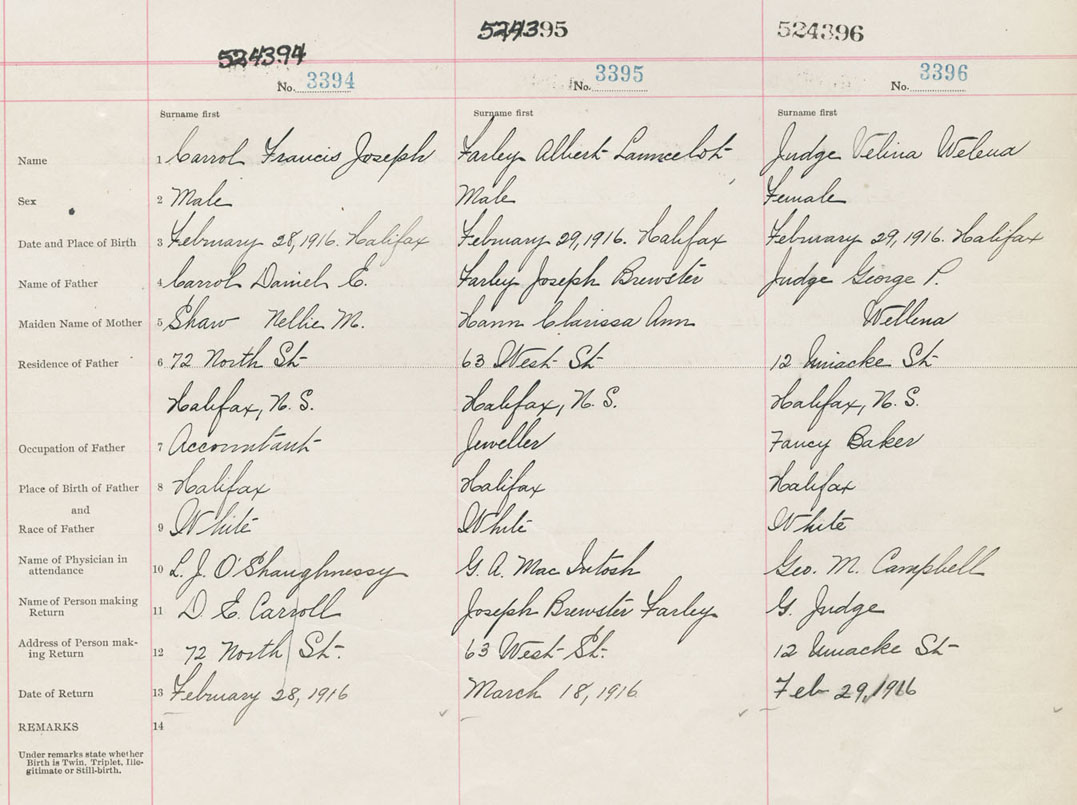 524394 524395 524396
No. 3394 No. 3395 No. 3396
Surname first Surname first Surname first
Name 1 Carrol Francis Joseph Farley Albert Launcelot Judge Velina Welena
Sex 2 Male Male Female
Date and Place of Birth 3 February 28, 1916. Halifax February 29, 1916. Halifax February 29, 1916. Halifax
Name of Father 4 Carrol Daniel E. Farley Joseph Brewster Judge George P.
Maiden Name of Mother 5 Shaw Nellie M. Hann Clarissa Ann Wellena
Residence of Father 6 72 North St 63 West St 12 Uniacke St
Halifax, N. S. Halifax, N. S. Halifax, N. S.
Occupation of Father 7 Accountant Jeweller Fancy Baker
Place of Birth of Father 8 Halifax Halifax Halifax
and
Race of Father 9 White White White
Name of Physician in
attendance 10 L. J. O'Shaughnessy G. A. Mac Intosh Geo. M. Campbell
Name of Person making
Return 11 D. E. Carroll Joseph Brewster Farley G. Judge
Address of Person mak-
ing Return 12 72 North St. 63 West St. 12 Uniacke St
Date of Return 13 February 28, 1916 March 18, 1916 Feb 29, 1916
REMARKS 14
Under remarks state whether
Birth is Twin, Triplet, Ille-
gitimate or Still-birth.